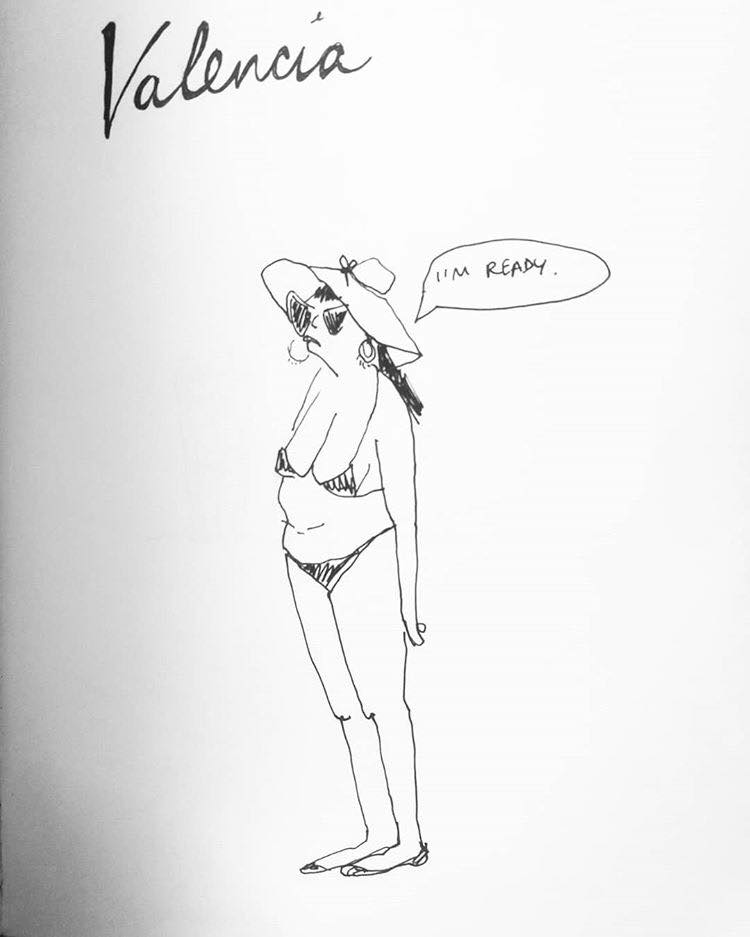 Valencia
I'M READY.